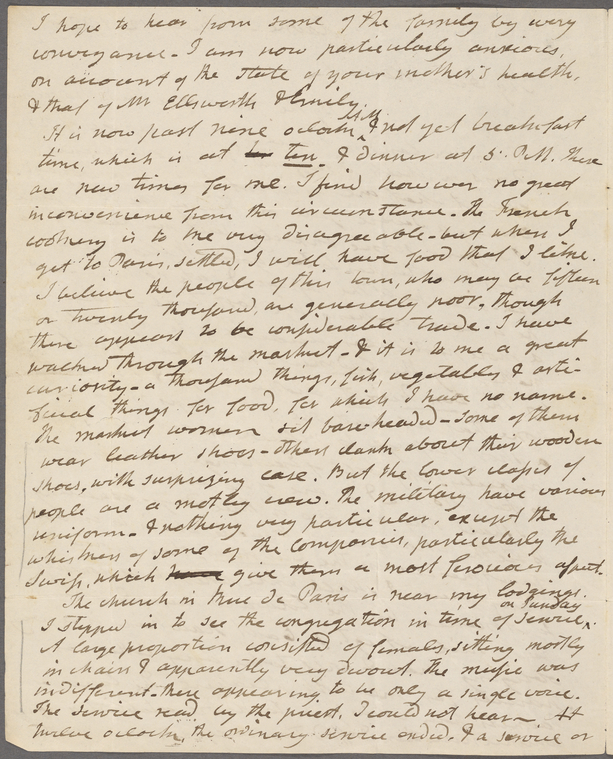 I hope to hear from some of the family by every
conveyance - I am now particularly anxious,
on account of the state of your mother's health,
& that of Mr Ellsworth & Emily.
It is now past nine oclock A.M. & not yet breakfast
time, which is at ten. & dinner at 5. P.M. These
are new times for me. I find however no great
inconvenience from this circumstance. The French
cookery is to me very disagreeable - but when I
get to Paris, settled, I will have food that I like.
I believe the people of this town, who may be fifteen
or twenty thousand, are generally poor, though
there appears to be considerable trade. I have
walked through the market - & it is to me a great
curiosity - a thousand things, fish, vegetables & arti-
ficial things for food, for which I have no name.
The market women sit bare-headed - some of them
wear leather shoes - others clank about their wooden
shoes, with surprizing ease. But the lower classes of
people are a motley crew. The military have various
uniform - & nothing very particular, except the
whiskers of some of the companies, particularly the
Swiss, which give them a most ferocious aspect.
The church in Rue de Paris is near my lodgings.
I stepped in to see the congregation in time of service on Sunday.
A large proportion consisted of females, sitting mostly
in chairs & apparently very devout. The music was
indifferent - there appearing to be only a single voice.
The service read by the priest, I could not hear. At
twelve oclock, the ordinary service ended, & a service or